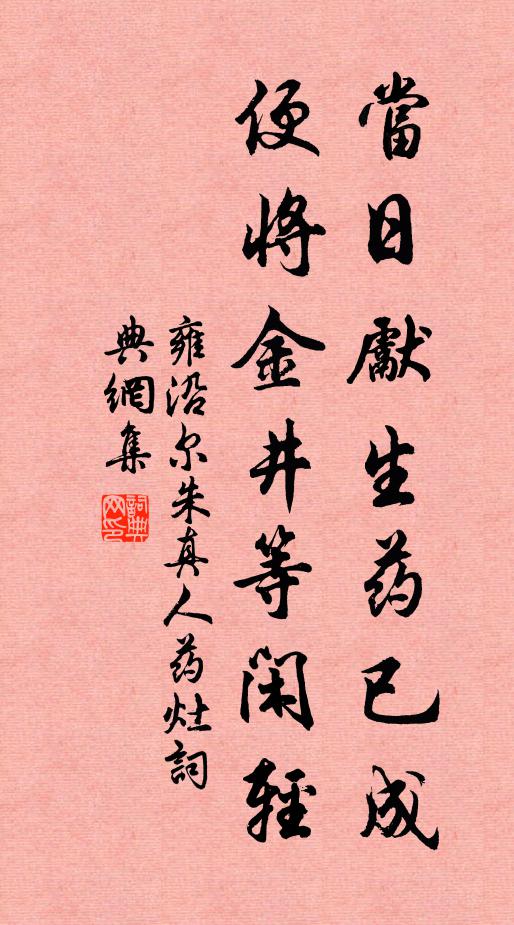 當日獻生药已成
便將金井等闲輕
雍沿尔朱真人药灶詞
典網集
詞典网印